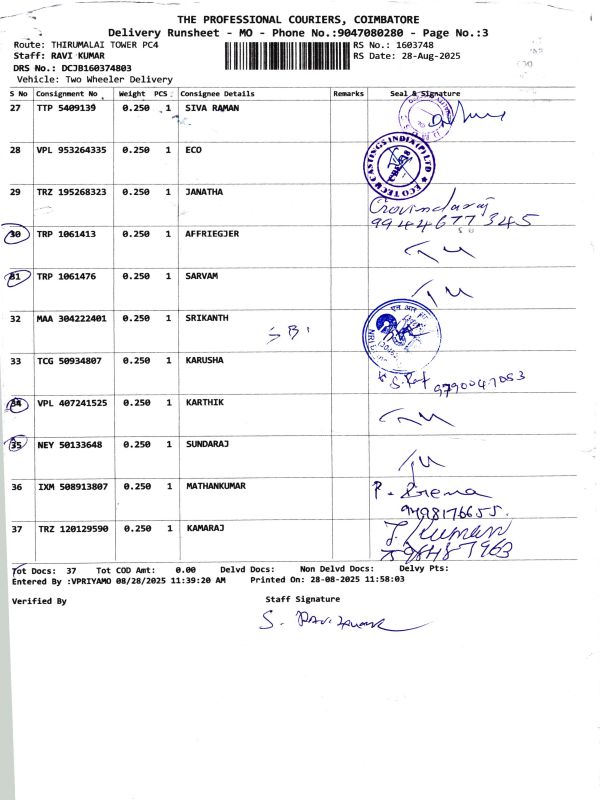 THE PROFESSIONAL COURIERS, COIMBATORE
Delivery Runsheet - MO - Phone No.:9047080280 - Page No.:3
Route: THIRUMALAI TOWER PC4 RS No.: 1603748
Staff: RAVI KUMAR RS Date: 28-Aug-2025
DRS No.: DCJB160374803
Vehicle: Two Wheeler Delivery
S No Consignment No Weight PCS Consignee Details Remarks Seal & Signature
27 TTP 5409139 0.250 1 SIVA RAMAN
28 VPL 953264335 0.250 1 ECO
ECO TECH CASTINGS INDIA (P) LTD
29 TRZ 195268323 0.250 1 JANATHA
Govindaraj
9944677345
30 TRP 1061413 0.250 1 AFFRIEGJER
31 TRP 1061476 0.250 1 SARVAM
32 MAA 304222401 0.250 1 SRIKANTH
SBI
33 TCG 50934807 0.250 1 KARUSHA
9790047053
34 VPL 407241525 0.250 1 KARTHIK
35 NEY 50133648 0.250 1 SUNDARAJ
36 IXM 508913807 0.250 1 MATHANKUMAR
P. Prema
9498176655.
37 TRZ 120129590 0.250 1 KAMARAJ
J. Kumar
Tot Docs: 37 Tot COD Amt: 0.00 Delvd Docs: Non Delvd Docs: Delvy Pts:
Entered By :VPRIYAMO 08/28/2025 11:39:20 AM Printed On: 28-08-2025 11:58:03
Verified By Staff Signature
S. Ravikumar